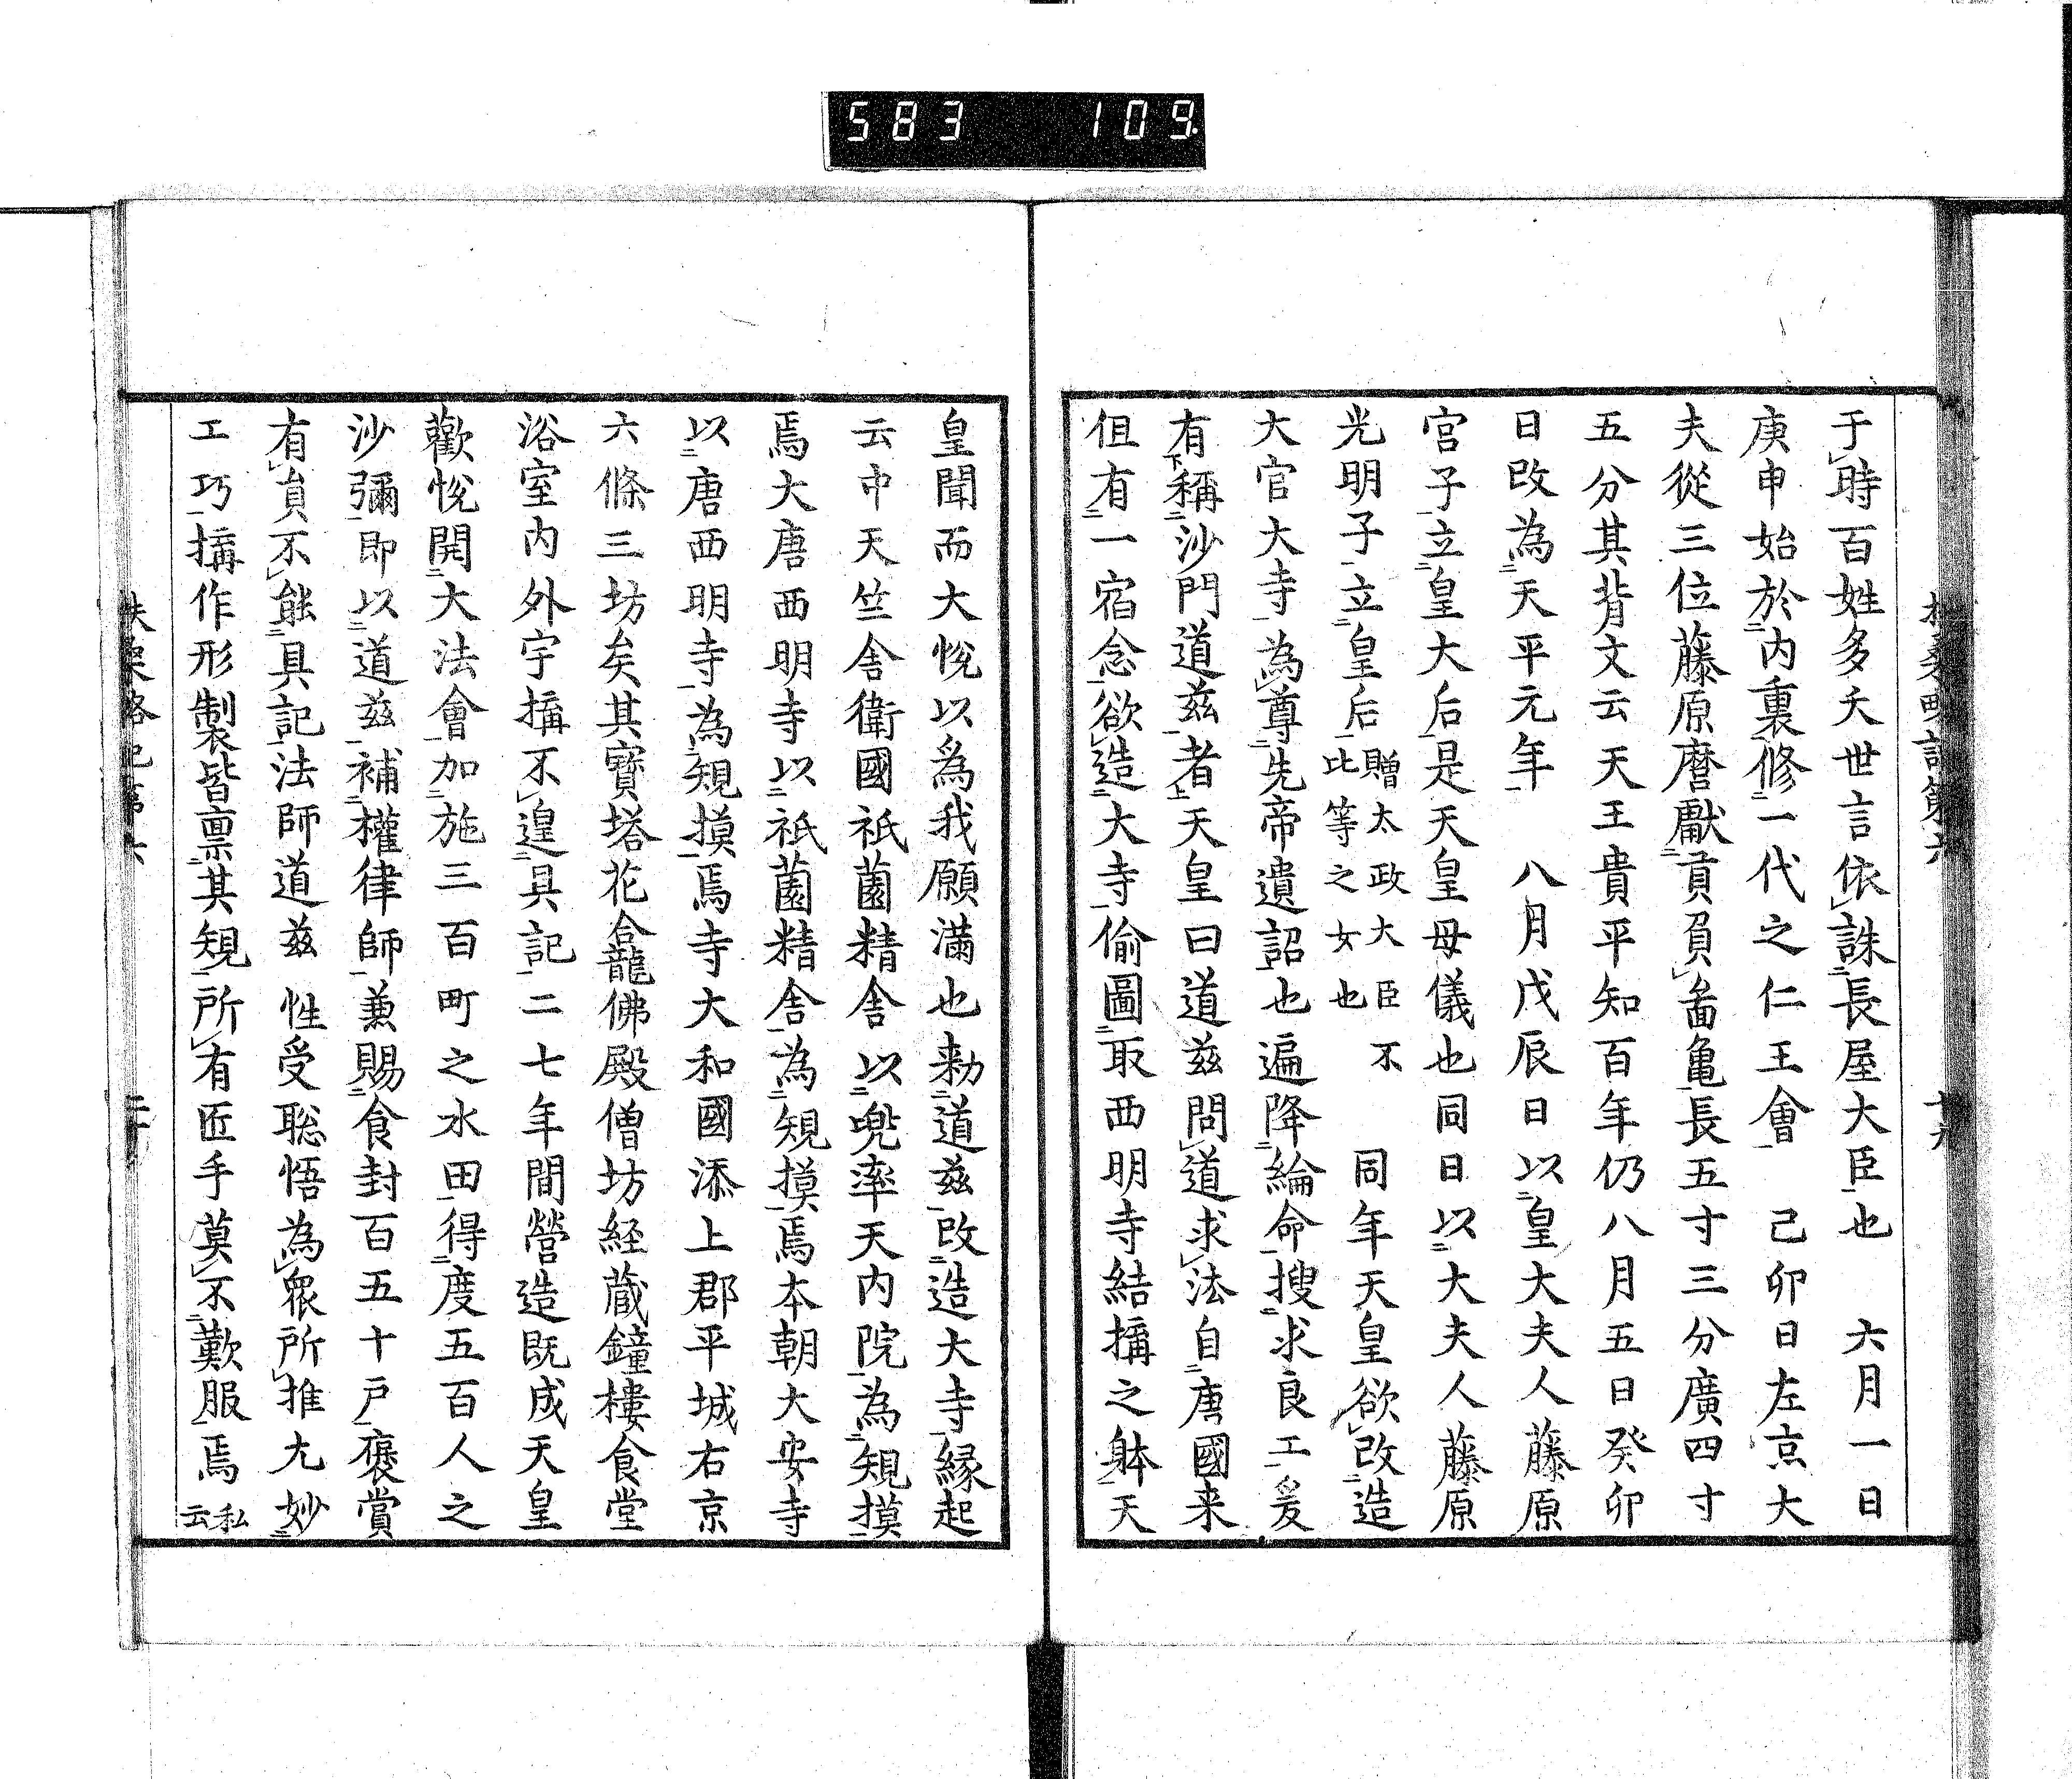 583 109
扶桑略記第六 十九
于時百姓多夭世言依誅長屋大臣也 六月一日
庚申始於内裏修一代之仁王會 己卯日左京大
夫從三位藤原麿獻貢負啚亀長五寸三分廣四寸
五分其背文云天王貴平知百年仍八月五日癸卯
日改為天平元年 八月戊辰日以皇大夫人藤原
宮子立皇大后是天皇母儀也同日以大夫人藤原
光明子立皇后贈太政大臣不此等之女也 同年天皇欲改造
大官大寺為尊先帝遺詔也遍降綸命搜求良工爰
有稱沙門道兹者天皇曰道兹問道求法自唐國来
但有一宿念欲造大寺偷圖取西明寺結搆之躰天
皇聞而大悅以爲我願滿也勅道兹改造大寺縁起
云中天竺舍衛國祇薗精舍以兜率天内院為規摸
焉大唐西明寺以祇薗精舍為規摸焉本朝大安寺
以唐西明寺為規摸焉寺大和國添上郡平城右京
六條三坊矣其寳塔花龕佛殿僧坊経蔵鐘樓食堂
浴室内外宇搆不遑具記二七年間營造既成天皇
歡悅開大法會加施三百町之水田得度五百人之
沙彌即以道兹補權律師兼賜食封百五十戸褒賞
有員不能具記法師道兹性受聡悟為衆所推尤妙
工巧搆作形製皆禀其規所有匠手莫不歎服焉私云
扶桑略記第六 二十